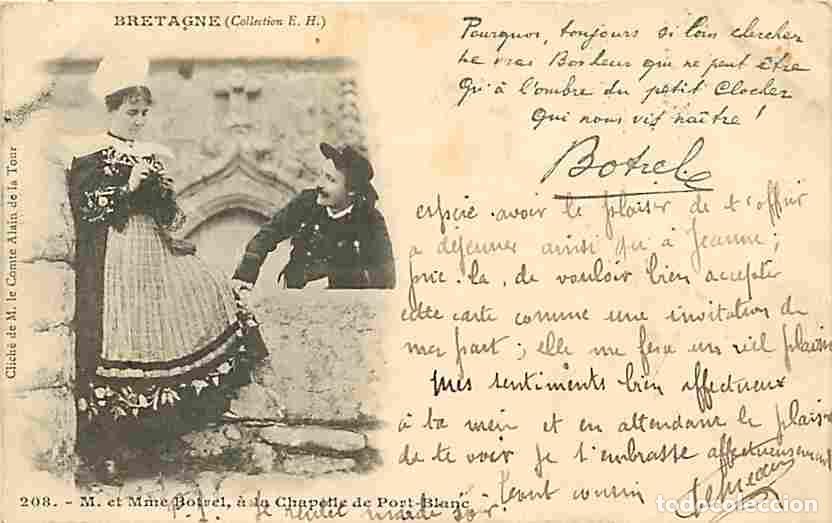 BRETAGNE (Collection E. H.)
Pourquoi, toujours si loin chercher
Le vrai Bonheur qui ne peut être
Qu'à l'ombre du petit Clocher
Qui nous vit naître !
Botrel
avoir le plaisir de t'offrir
a déjeuner ainsi qu'à Jeanne,
prie-la, de vouloir bien accepter
cette carte comme une invitation de
ma part ; elle me fera un réel plaisir
Mes sentiments bien affectueux
à ta mère et en attendant le plaisir
de te voir je t'embrasse affectueusement
cousin
Cliché de M. le Comte Alain de la Tour
208. - M. et Mme Botrel, à la Chapelle de Port-Blanc
mardi soir
todocoleccion